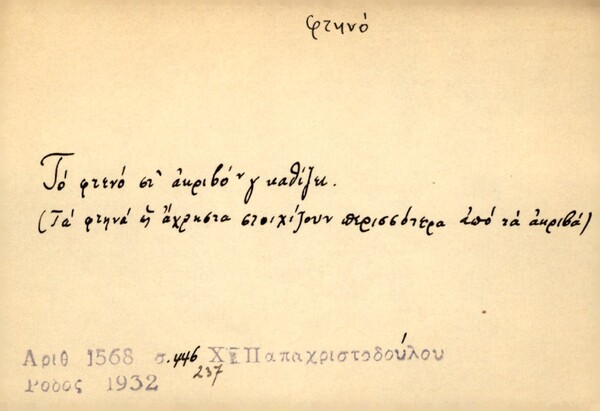 φτηνό
Τό φτενό στ' ἀκριβό ν γ καθίζει.
(Τά φτηνά ἤ ἄχρηστα στοιχίζουν περισσότερα ἀπό τά ἀκριβά)
Αριθ 1568 σ. 446 Χ Παπαχριστοδούλου
237
Ρόδος 1932